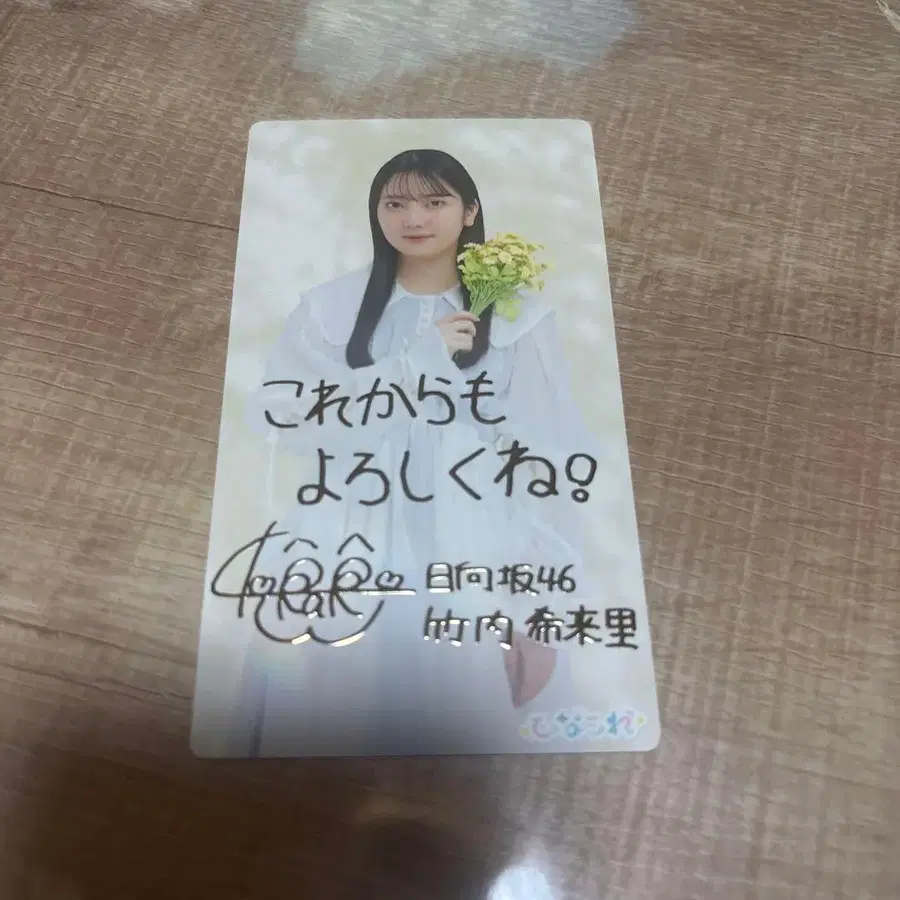 これからも
よろしくね!
日向坂46
竹内希来里
ひなこれ